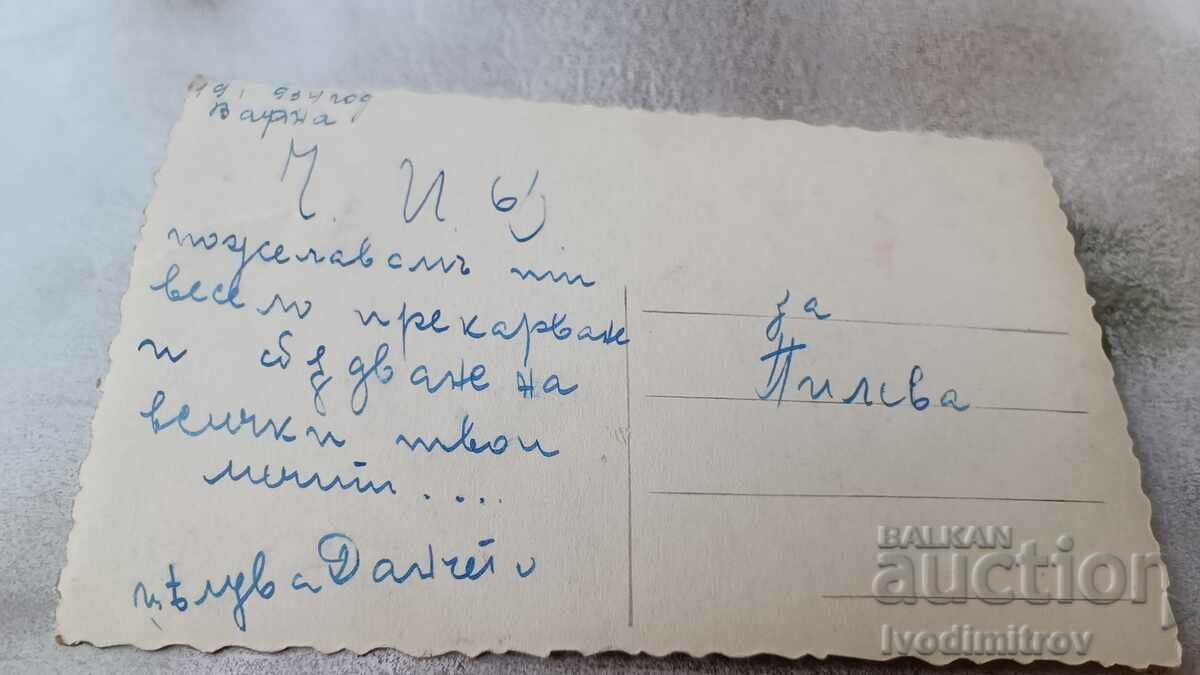 19 I 934 год
Варна
Ч. И Б.
пожелавамъ ти
весело прекарване
и сбъдване на
всички твои
мечти ....
цѣлува Данчето
за
Пилева
BALKAN
auction
Ivodimitrov